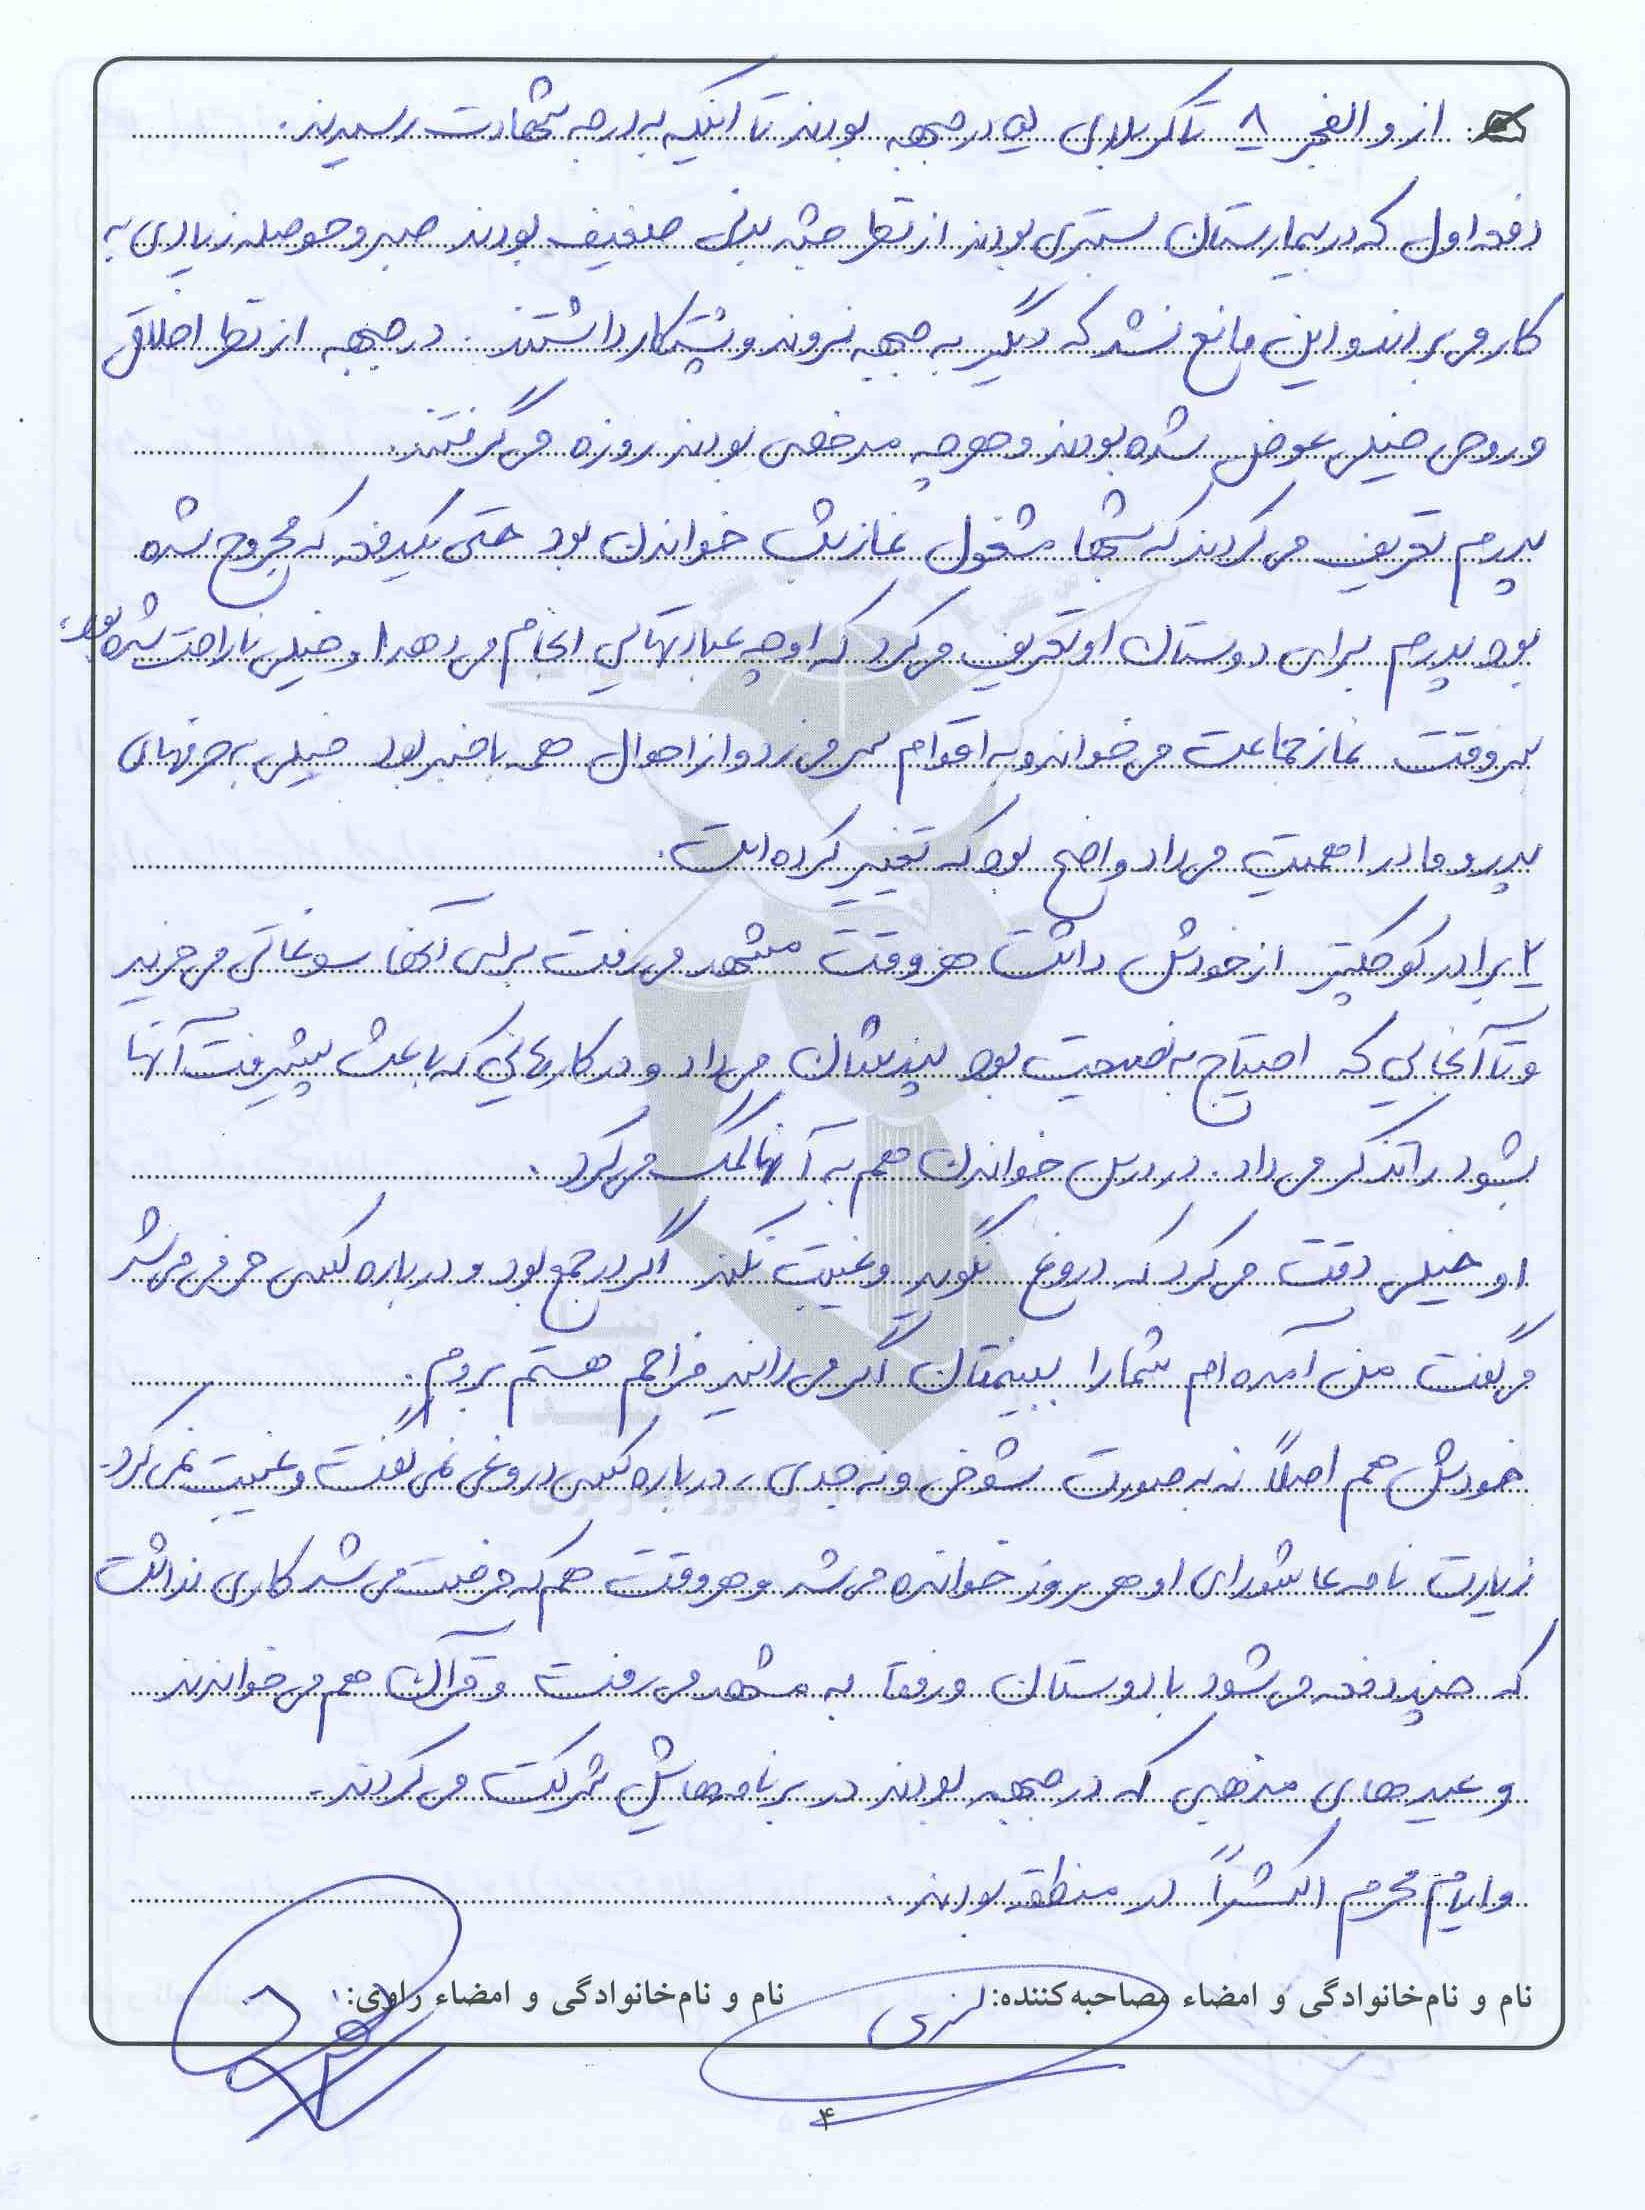 از والفجر ۸ تا کربلای در جبهه بودند تا اینکه به درجه شهادت رسیدند.
دفعه اول که در بیمارستان بستری بودند از نظر جثه بدنی ضعیف بودند صبر و حوصله زیادی به
کار می‌بردند و این مانع نشد که دیگر به جبهه نروند و پشتکار داشتند. در جبهه از نظر اخلاقی
و روحی خیلی عوض شده بودند و هر چه مرخصی بودند روزه می‌گرفتند.
پدرم تعریف می‌کردند که شبها مشغول نماز شب خواندن بود حتی یکدفعه که مجروح شده
بود پدرم برای دوستان او تعریف می‌کرد که او چه عبادتهایی انجام می‌دهد او خیلی ناراحت شده بود.
سر وقت نماز جماعت می‌خواند و به اقوام سر می‌زد و از احوال همه با خبر بود خیلی به حرفهای
پدر و مادر اهمیت می‌داد واضح بود که تغییر کرده است.
۲ برادر کوچکتر از خودش داشت هر وقت مشهد می‌رفت برای آنها سوغاتی می‌خرید
و تا آنجایی که احتیاج به نصیحت بود پندشان می‌داد و در کارهایی که باعث پیشرفت آنها
بشود را تذکر می‌داد. در درس خواندن هم به آنها کمک می‌کرد.
او خیلی دقت می‌کرد که دروغ نگوید و غیبت نکند اگر در جمع بود و درباره کسی حرفی می‌شد
می‌گفت من آمده‌ام شما را ببینمتان اگر می‌دانید مزاحم هستم بروم.
خودش هم اصلاً نه به صورت شوخی و نه جدی، درباره کسی دروغی نمی‌گفت و غیبت نمی‌کرد.
زیارت نامه عاشورای او هر روز خوانده می‌شد و هر وقت هم که فرصت می‌شد کاری نداشت
که چند دفعه می‌شود با دوستان و رفقا به مشهد می‌رفت و قرآن هم می‌خواندند
و عیدهای مذهبی که در جبهه بودند در برنامه‌هایش شرکت می‌کردند.
و ایام محرم اکثراً در منطقه بودند.
نام و نام‌خانوادگی و امضاء مصاحبه‌کننده: نام و نام‌خانوادگی و امضاء راوی:
۴